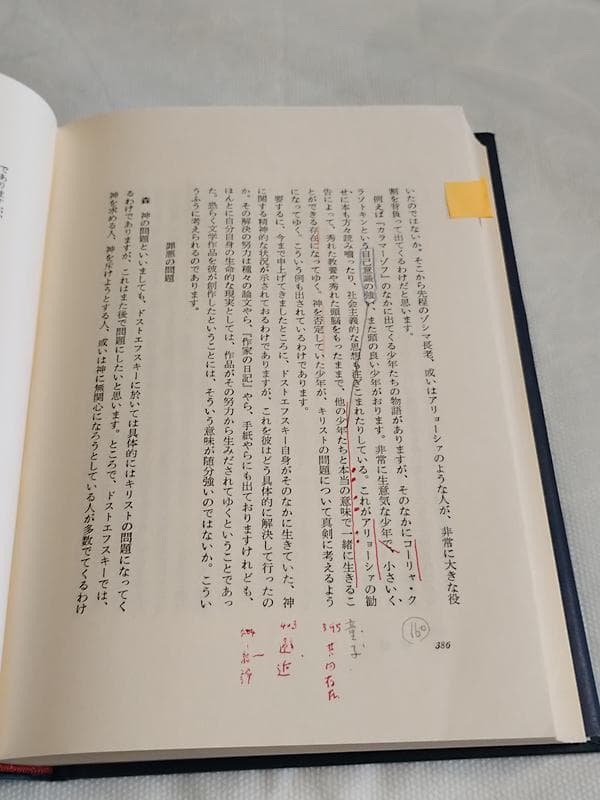 いたのではないか。そこから先程のゾシマ長老、或いはアリョーシァのような人が、非常に大きな役
割を背負って出てくるわけだと思います。
例えば『カラマーゾフ』のなかに出てくる少年たちの物語がありますが、そのなかにコーリャ・ク
ラソートキンという自己意識の強い、また頭の良い少年がおります。非常に生意気な少年で、小さいく
せに本も方々読み囓ったり、社会主義的な思想も注ぎこまれたりしている。これがアリョーシァの勧
告によって、秀れた教養や秀れた頭脳をもったままで、他の少年たちと本当の意味で一緒に生きるこ
とができる存在になってゆく。神を否定していた少年が、キリストの問題について真剣に考えるよう
になってゆく、こういう例も出されているわけであります。
要するに、今まで申上げてきましたところに、ドストエフスキー自身がそのなかに生きていた、神
に関する精神的な状況が示されておるわけでありますが、これを彼はどう具体的に解決して行ったの
か。その解決の努力は種々の論文やら、『作家の日記』やら、手紙やらにも出ておりますけれども、
ほんとに自分自身の生命的な現実としては、作品がその努力から生みだされてゆくということであっ
た。恐らく文学作品を彼が創作したということには、そういう意味が随分強いのではないか。こうい
うふうに考えられるのであります。
罪悪の問題
森 神の問題といいましても、ドストエフスキーに於いては具体的にはキリストの問題になってく
るわけでありますが、これはまた後で問題にしたいと思います。ところで、ドストエフスキーでは、
神を求める人、神を斥けようとする人、或いは神に無関心になろうとしている人が多数でてくるわけ
386
160
395 共同存在
403